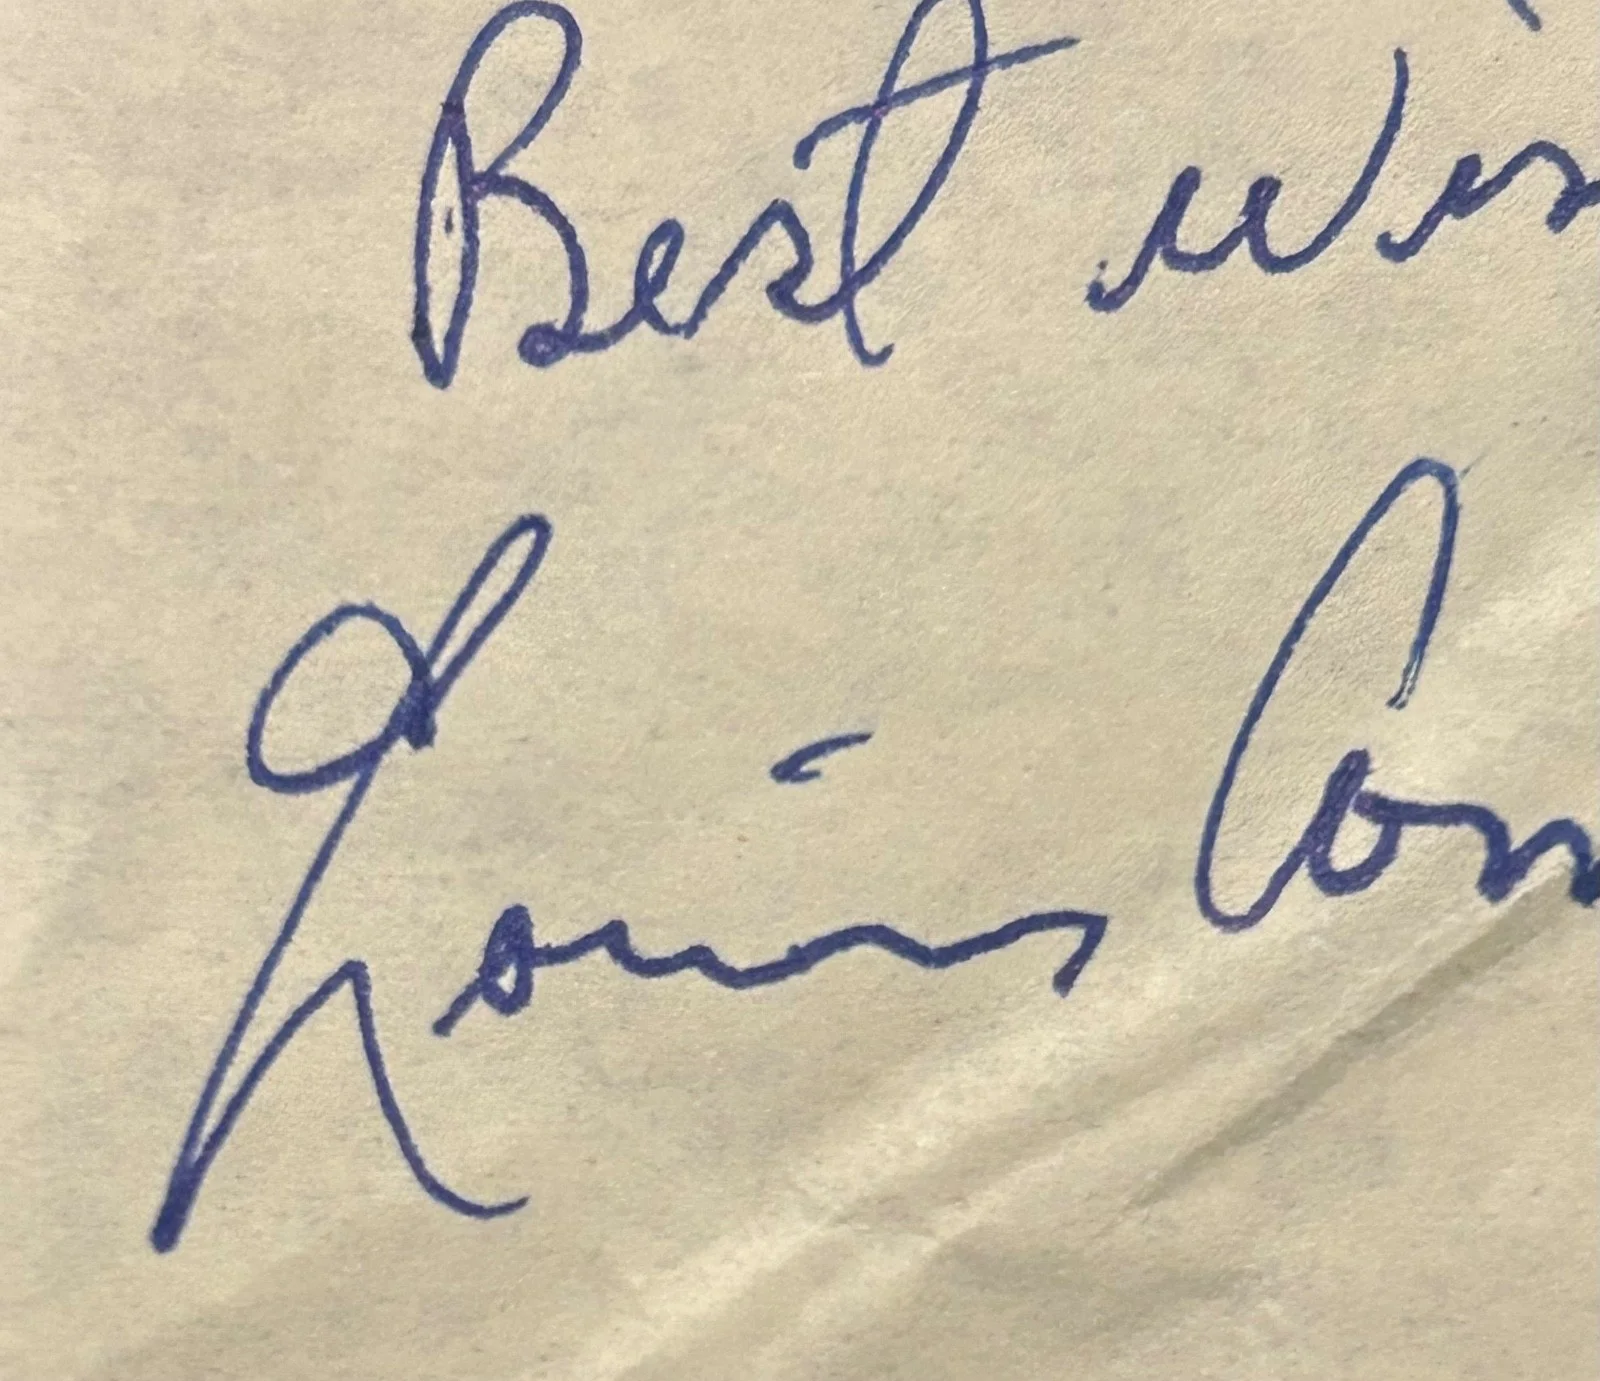 Best wis
Louis Com